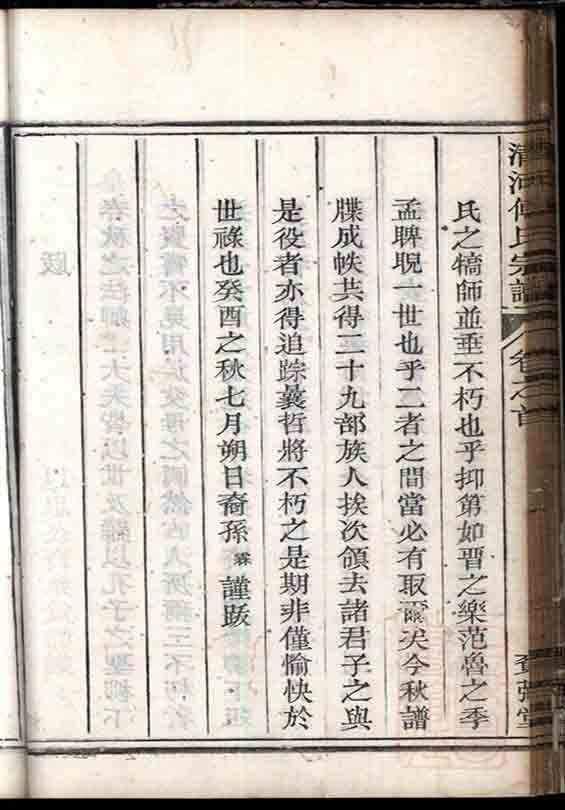 清河傅氏宗譜
卷之首
氏之犒師並垂不朽也乎抑第如晉之樂范魯之季
孟睥睨一世也乎二者之間當必有取爾矣今秋譜
牒成帙共得二十九部族人挨次領去諸君子之與
是役者亦得追踪曩哲將不朽之是期非僅愉快於
世祿也癸酉之秋七月朔日裔孫 謹跋